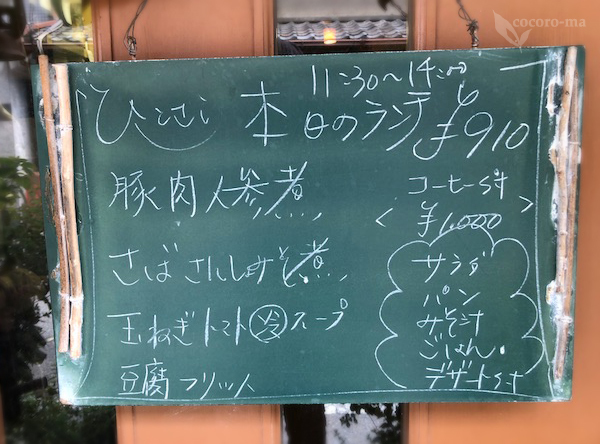 cocoro-ma
11:30~14:00
本日のランチ ¥910
豚肉人参煮
コーヒー付
<¥1,000>
さばさんしょみそ煮
玉ねぎトマト冷スープ
豆腐フリット
サラダ
パン
みそ汁
ごはん
デザート付